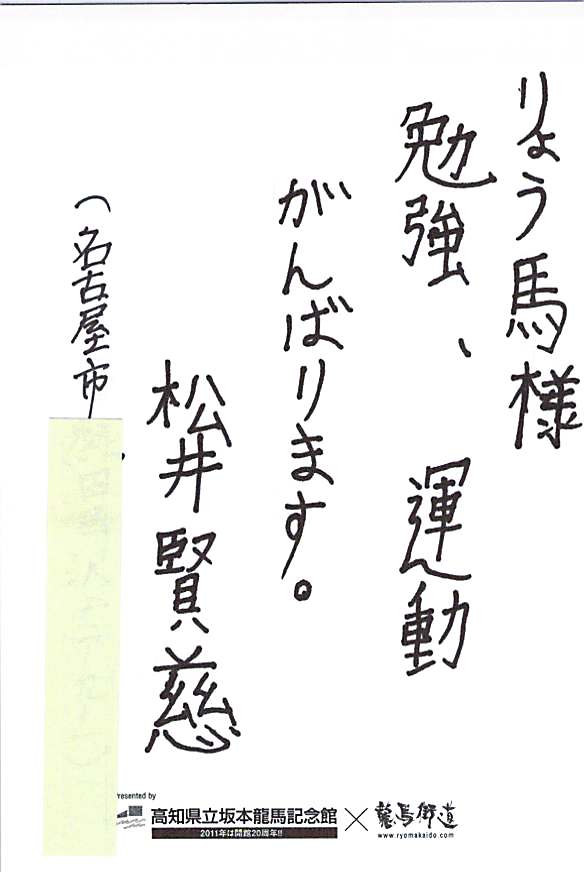 りょう馬様
勉強、運動
がんばります。
松井賢慈
(名古屋市
Presented by
高知県立坂本龍馬記念館×龍馬街道
2011年は開館20周年!!
www.ryomakaido.com